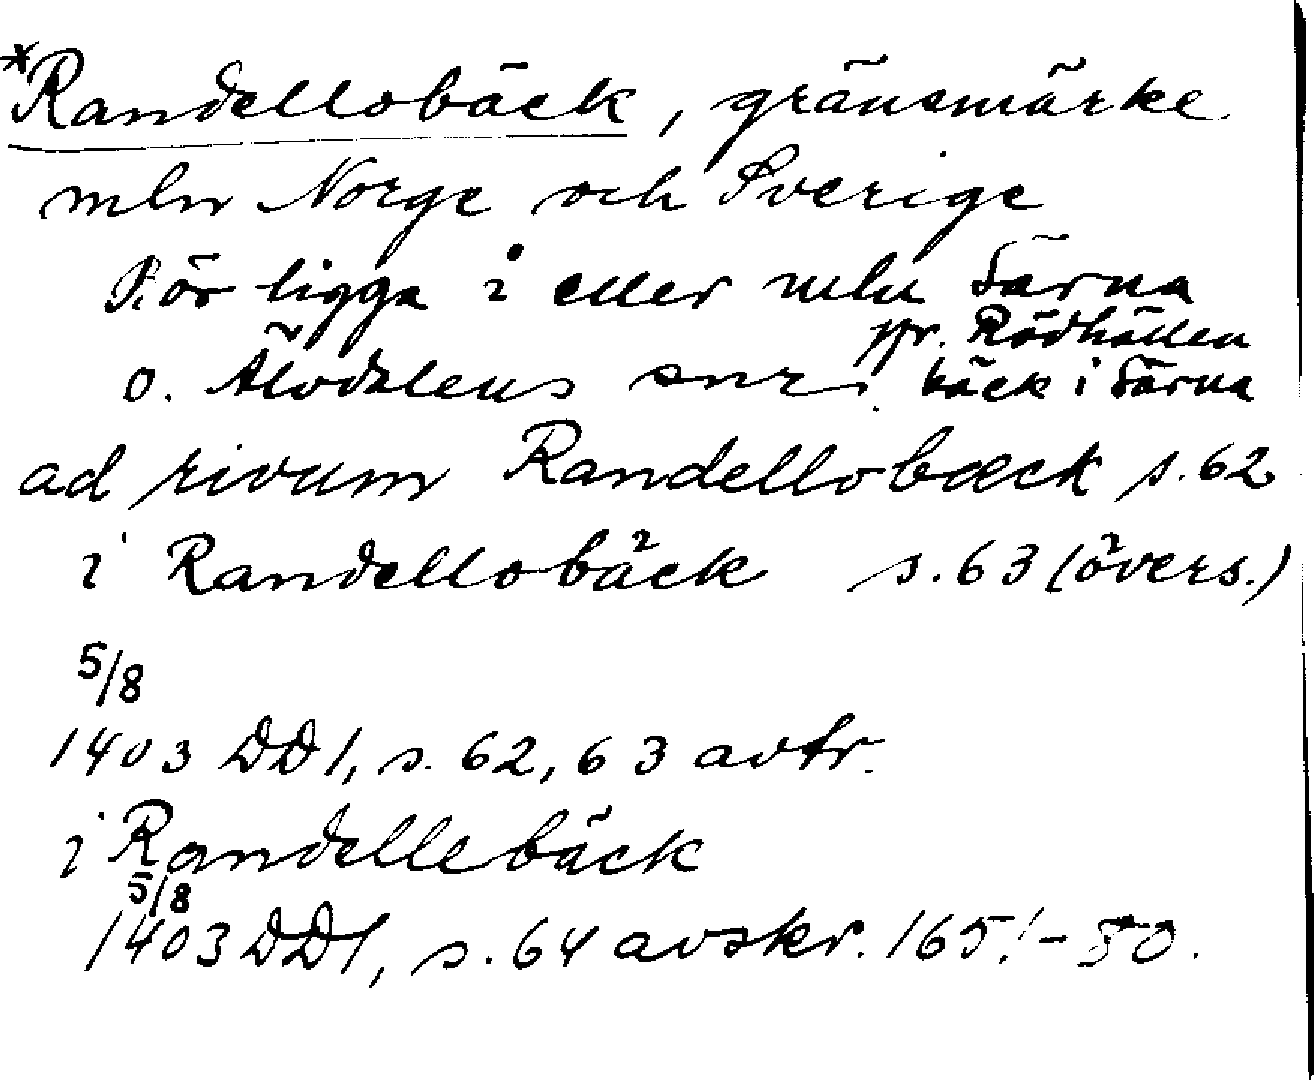 *Randellobäck, gränsmärke
mln Norge och Sverige
Bör ligga i eller mln Särna
jfr. Rödhällen
o. Älvdalens snr. bäck i Särna
ad rivum Randellobæck s. 62
i Randellobäck s. 63 (övers.)
5/8
1403 DD1, s. 62, 63 avtr.
i Randellebäck
5/8
1403 DD1, s. 64 avskr. 165!-50.